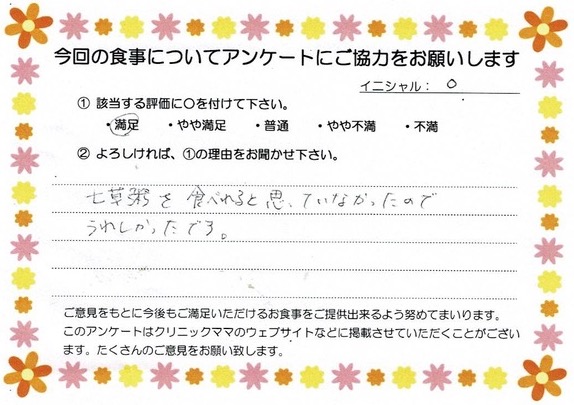 今回の食事についてアンケートにご協力をお願いします
イニシャル： O
① 該当する評価に○を付けて下さい。
・満足 ・やや満足 ・普通 ・やや不満 ・不満
② よろしければ、①の理由をお聞かせ下さい。
七草粥を食べれると思っていなかったので
うれしかったです。
ご意見をもとに今後もご満足いただけるお食事をご提供出来るよう努めてまいります。
このアンケートはクリニックママのウェブサイトなどに掲載させていただくことがござい
ます。たくさんのご意見をお願い致します。